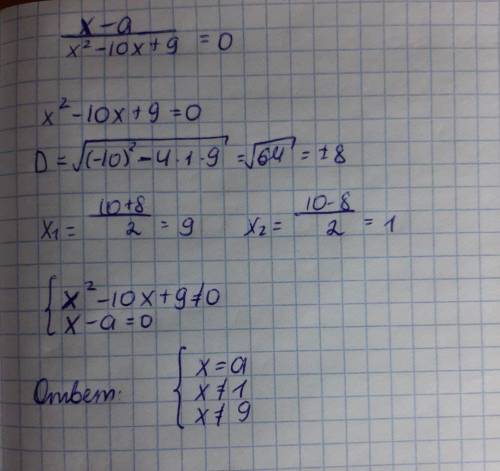 x-a / x²-10x+9 = 0
x²-10x+9=0
D=√(-10)²-4·1·9 = √64 = ±8
x₁= 10+8 / 2 = 9 x₂= 10-8 / 2 = 1
{ x²-10x+9≠0
x-a=0
Ответ: { x=a
x≠1
x≠9